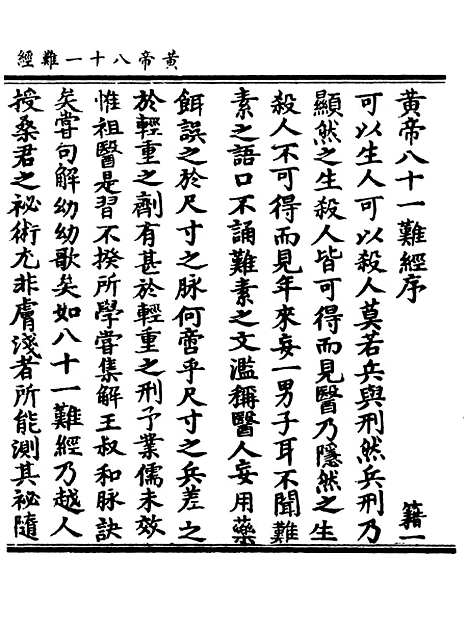 黃帝八十一難經
黃帝八十一難經序
籍一
可以生人可以殺人莫若兵與刑然兵刑乃
顯然之生殺人皆可得而見醫乃隱然之生
殺人不可得而見年來妄一男子耳不聞難
素之語口不誦難素之文濫稱醫人妄用藥
餌誤之於尺寸之脉何啻乎尺寸之兵差之
於輕重之劑有甚於輕重之刑予業儒未效
惟祖醫是習不揆所學嘗集解王叔和脉訣
矣嘗句解幼幼歌矣如八十一難經乃越人
授桑君之祕術尤非膚淺者所能測其祕隨